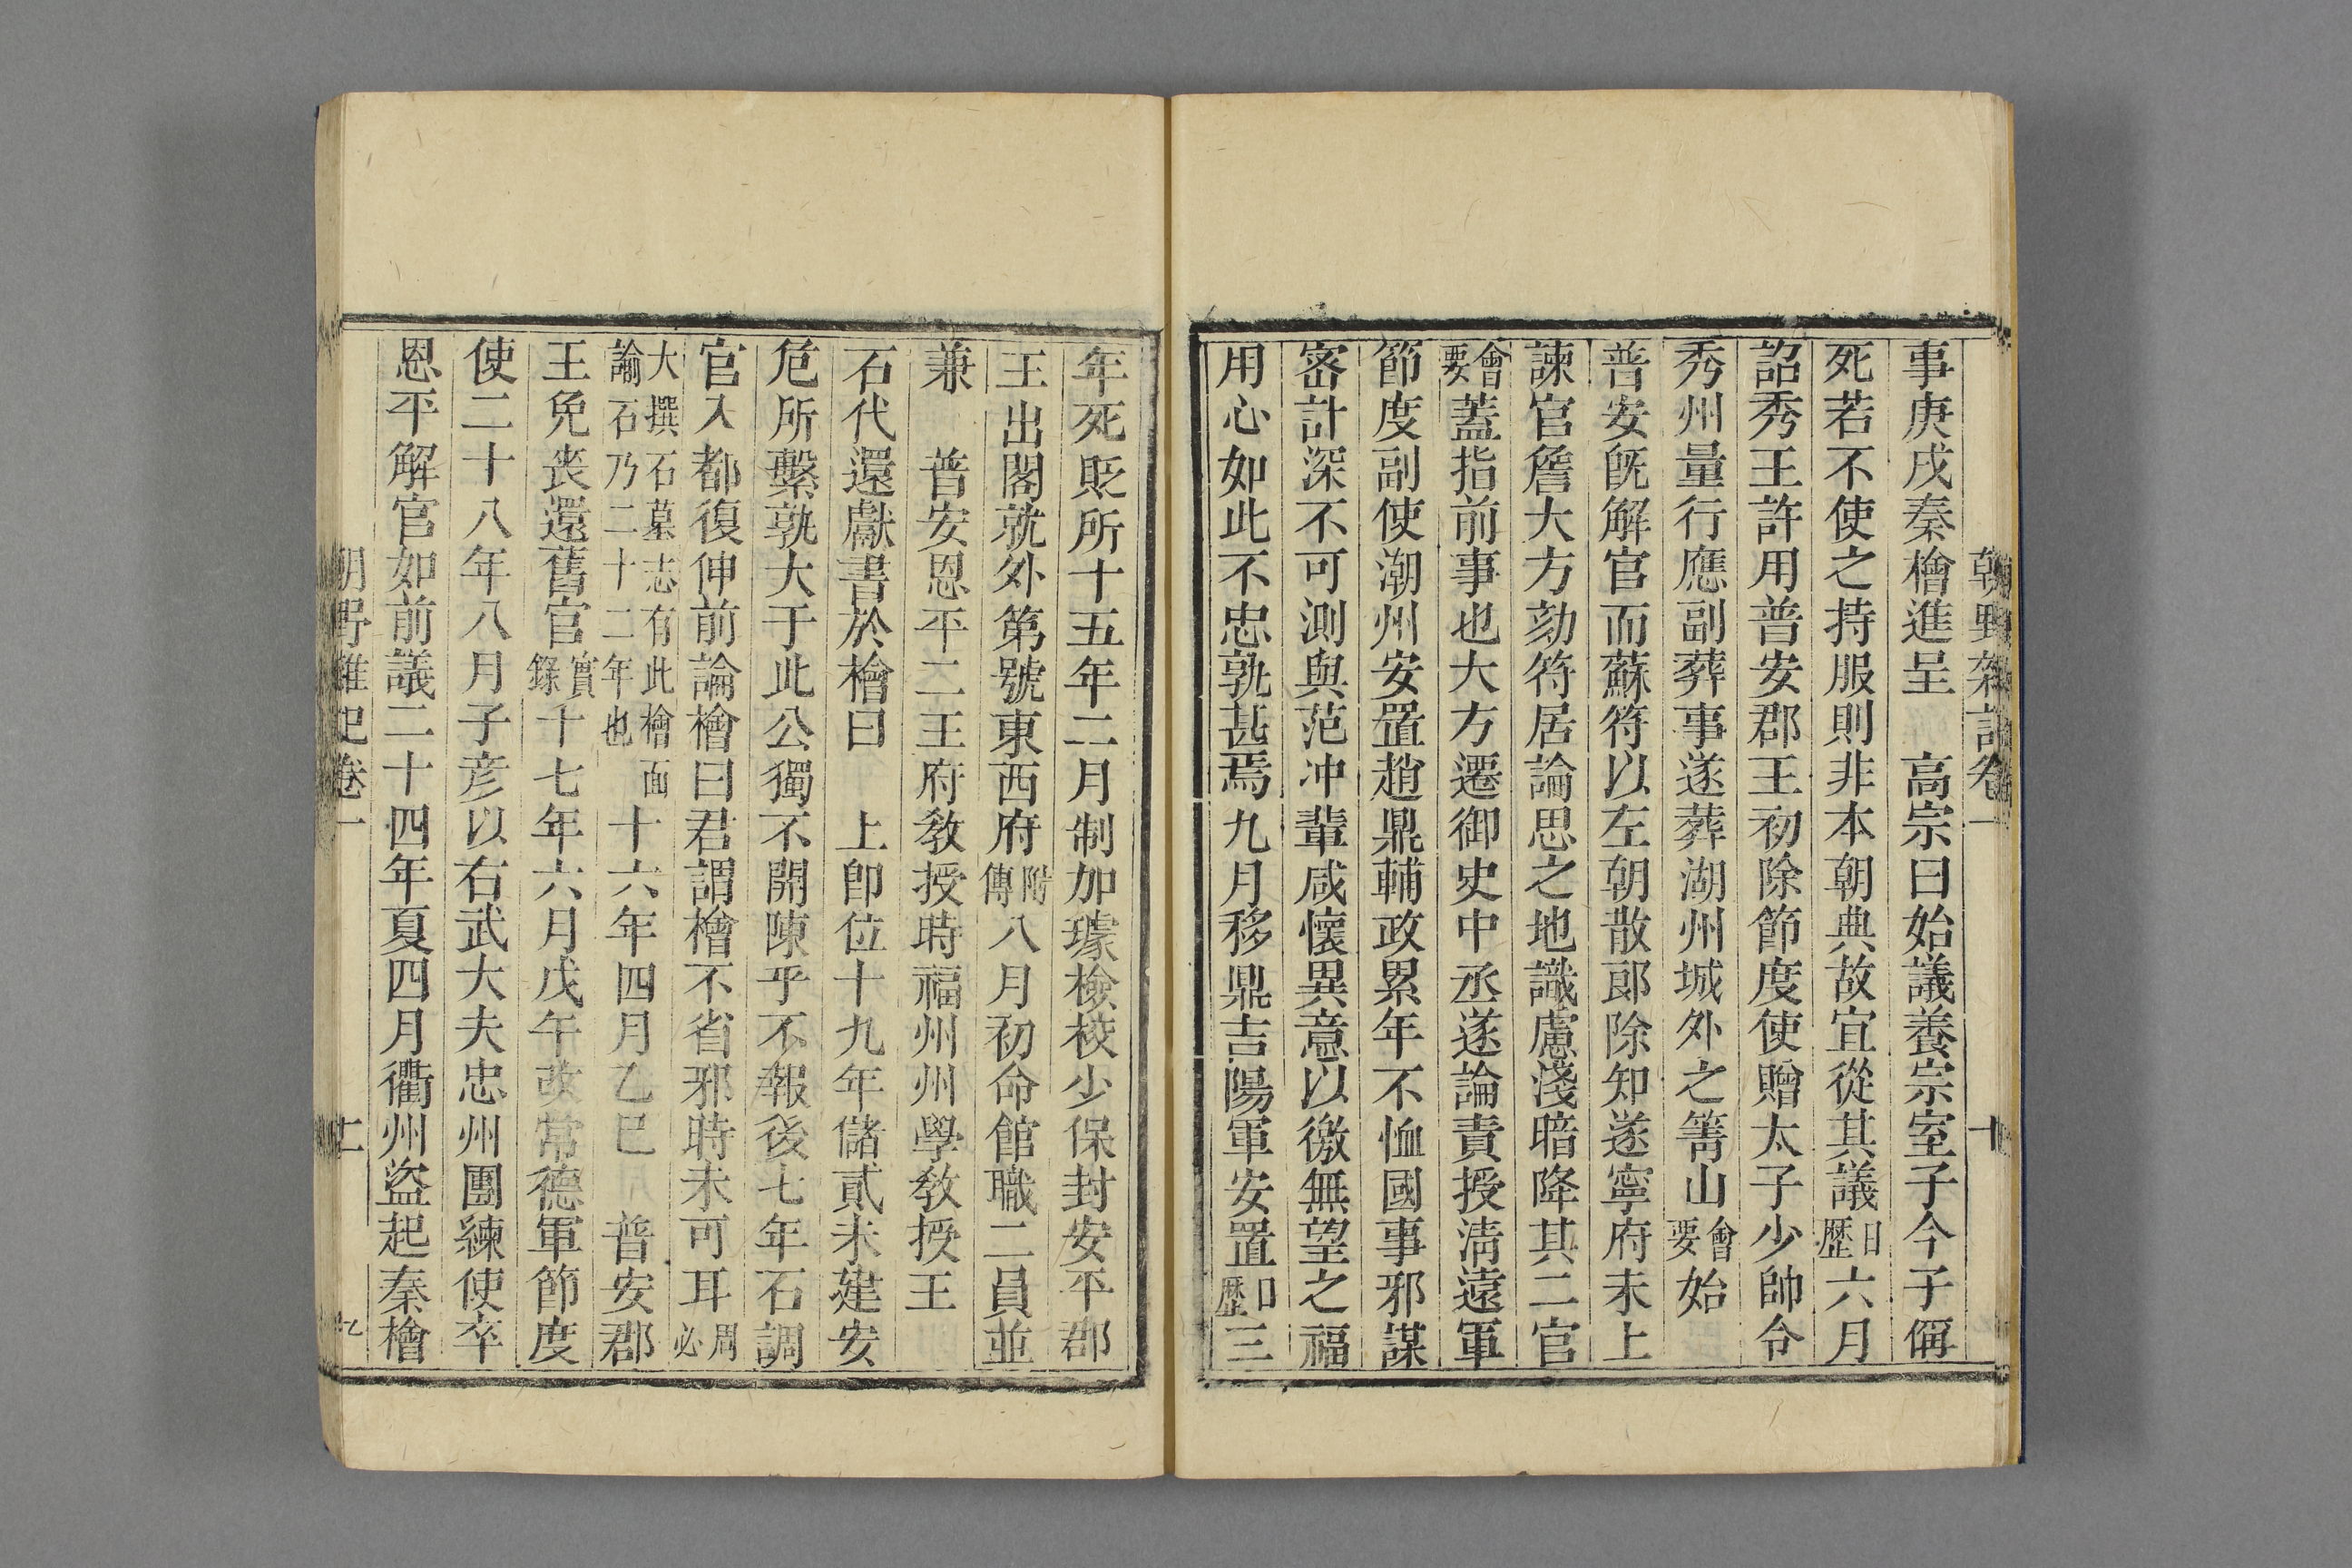 朝野雜記卷一 十
事庚戌秦檜進呈 高宗曰始議養宗室子今子偁
死若不使之持服則非本朝典故宜從其議日歷六月
詔秀王許用普安郡王初除節度使贈太子少帥令
秀州量行應副葬事遂葬湖州城外之箐山會要始
普安旣解官而蘇符以左朝散郎除知遂寧府未上
諫官詹大方劾符居論思之地識慮淺暗降其二官
會要蓋指前事也大方遷御史中丞遂論責授淸遠軍
節度副使潮州安置趙鼎輔政累年不恤國事邪謀
密計深不可測與范冲輩咸懷異意以徼無望之福
用心如此不忠孰甚焉九月移鼎吉陽軍安置日歷三
年死貶所十五年二月制加璩檢校少保封安平郡
王出閣就外第號東西府附傳八月初命館職二員並
兼 普安恩平二王府敎授時福州州學敎授王
石代還獻書於檜曰 上卽位十九年儲貳未建安
危所繫孰大于此公獨不開陳乎不報後七年石調
官入都復伸前論檜曰君謂檜不省邪時未可耳周必
大撰石墓志有此檜面諭石乃二十二年也十六年四月乙巳 普安郡
王免喪還舊官實錄十七年六月戊午改常德軍節度
使二十八年八月子彦以右武大夫忠州團練使卒
恩平解官如前議二十四年夏四月衢州盜起秦檜
朝野雜記卷一